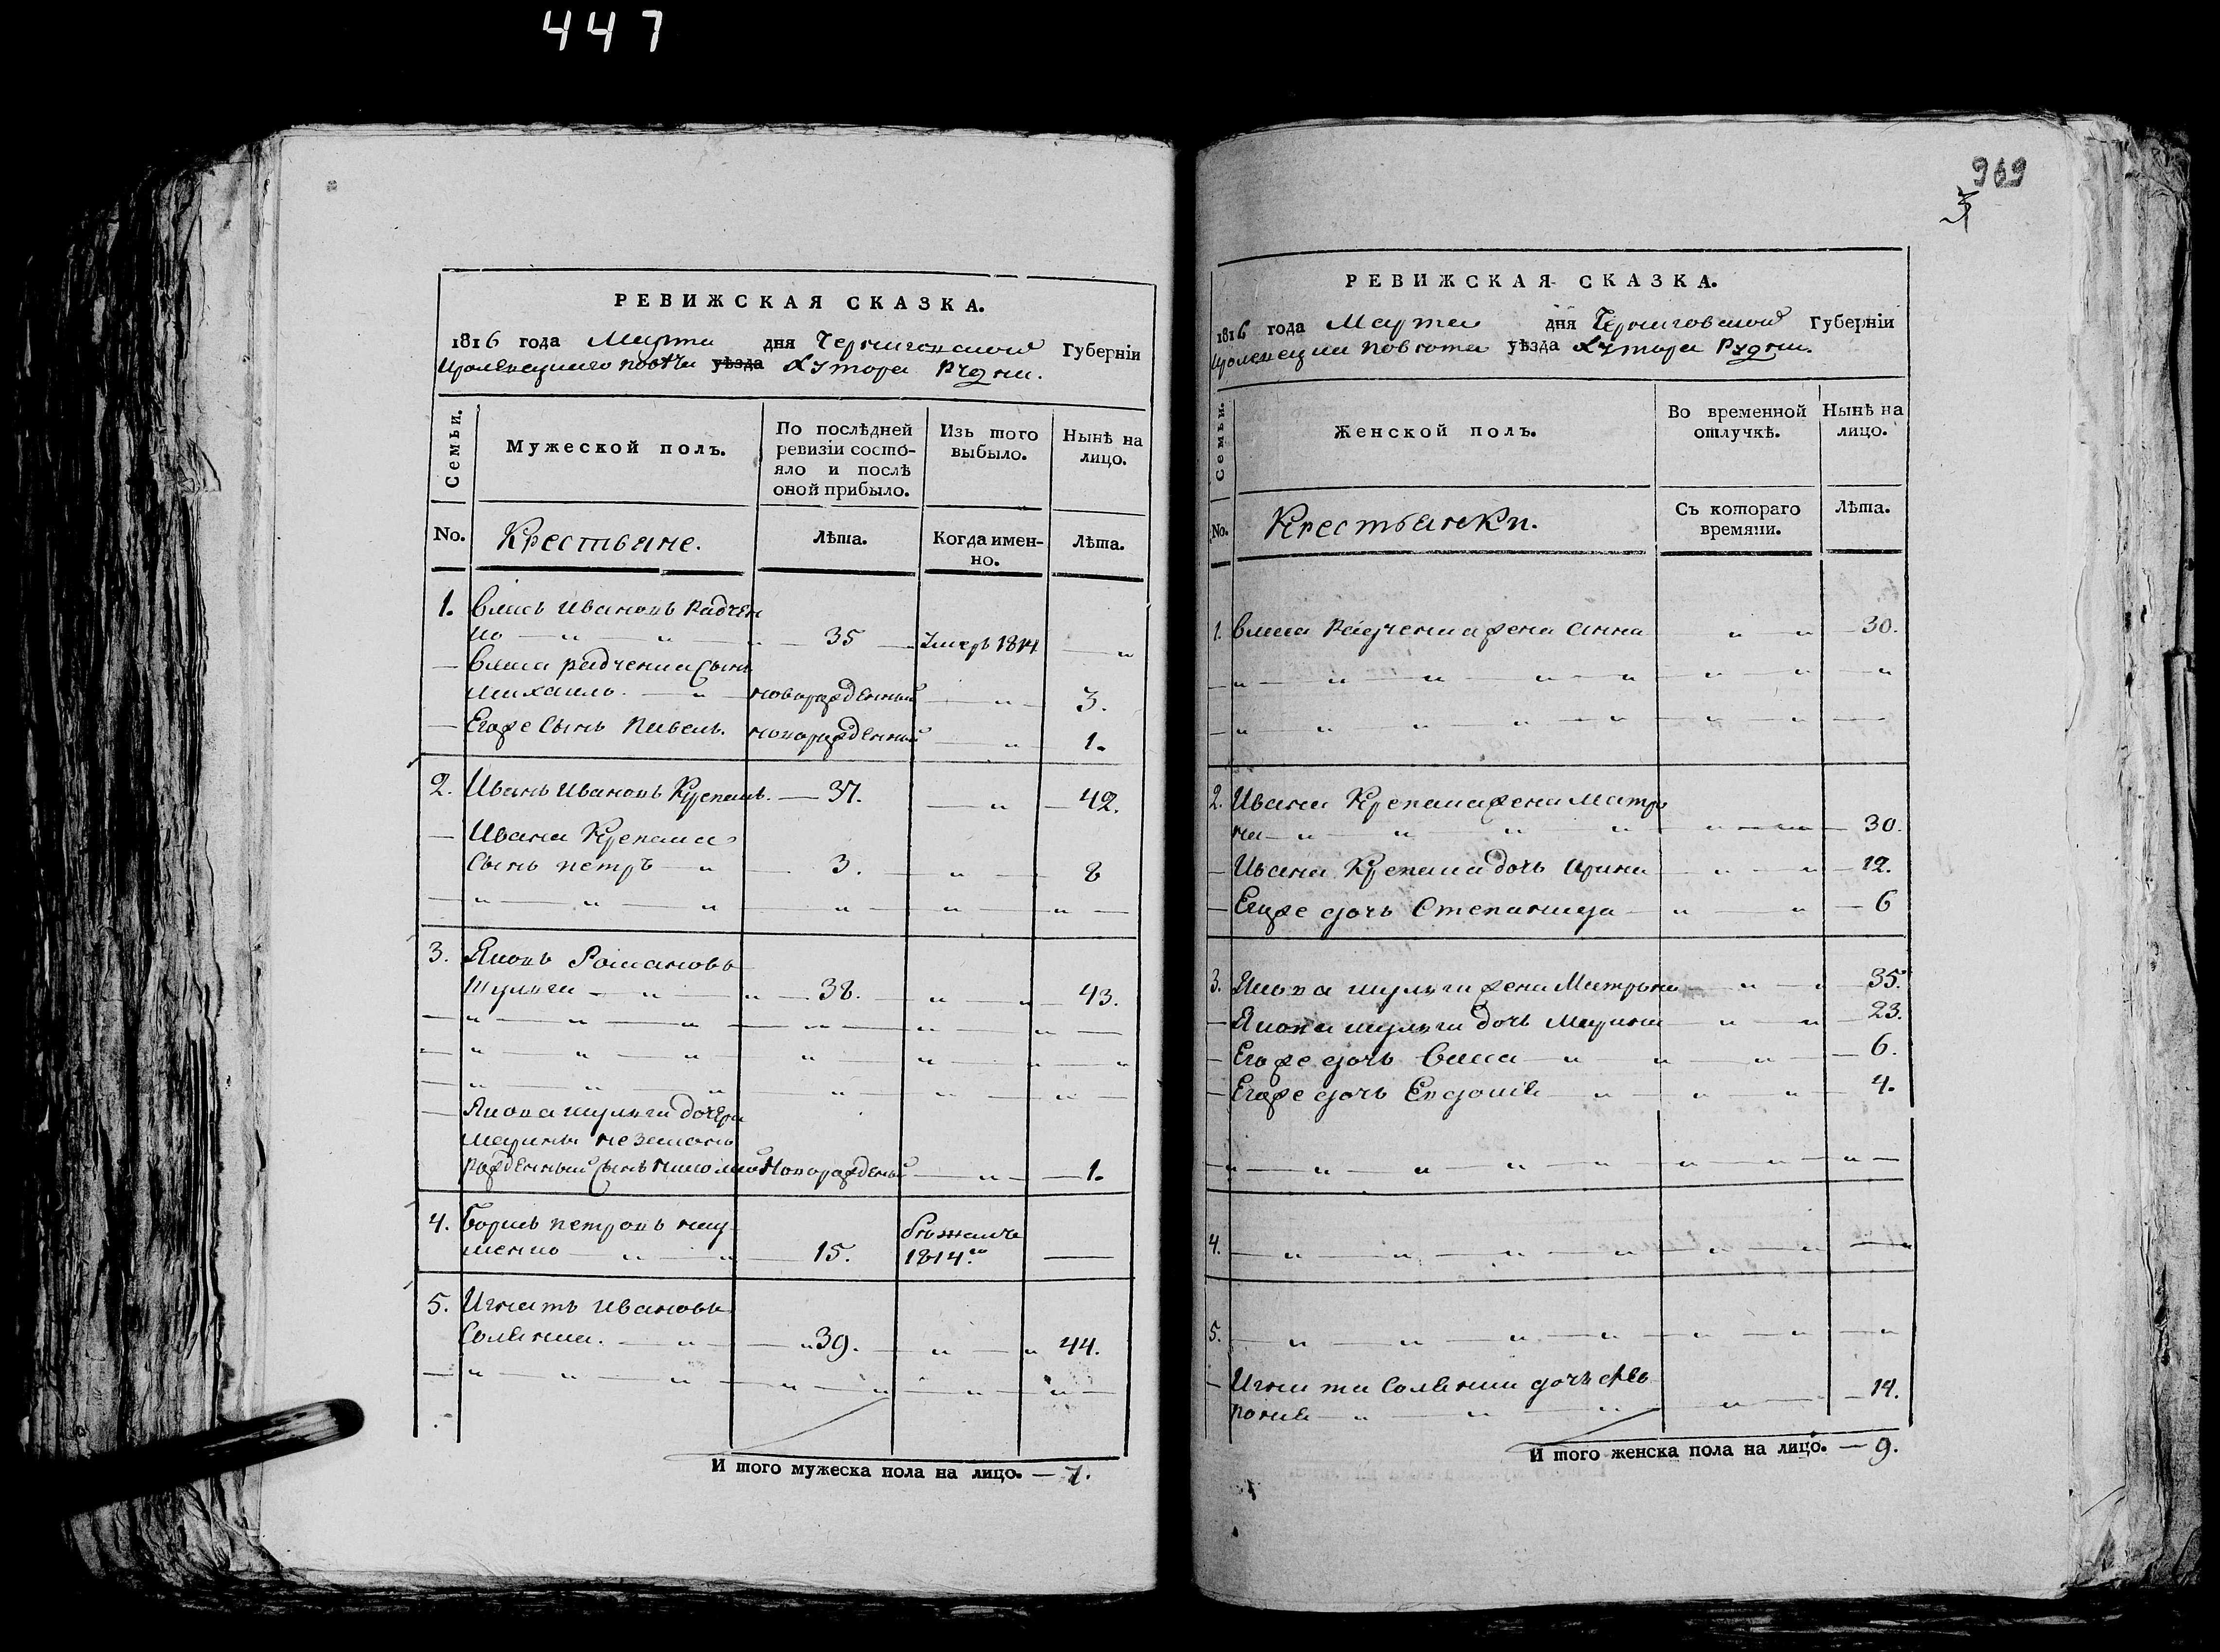 447
РЕВИЖСКАЯ СКАЗКА.
1816 года Марта дня Черниговской Губерніи
повѣта уѣзда Хутора Рудни.
Семьи.
Мужеской полъ.
По послѣдней ревизіи состо-
яло и послѣ
оной прибыло.
Изъ того
выбыло.
Нынѣ на
лицо.
No.
Крестьяне.
Лѣта.
Когда имен-
но.
Лѣта.
1. Власъ Ивановъ Радчен
ко — 35 — Умеръ 1814 —
Власа радченка Сынъ
михаилъ. новорожденный 3.
Егоже Сынъ Павелъ. новорожденный 1.
2. Иванъ Ивановъ Крепакъ. — 37. — 42.
Ивана Крепака
Сынъ петръ 3. 8
3. Яковъ Романовъ
Шульга 38. 43.
Якова шульги дочери
марины незаконо
рожденный Сынъ Новорожденый 1.
4. Борисъ петровъ
15. бѣжалъ
1814го —
5. Игнатъ Ивановъ
39. 44.
И того мужеска пола на лицо. — 7.
969
РЕВИЖСКАЯ СКАЗКА.
1816 года Марта дня Черниговской Губерніи
Повѣта уѣзда Хутора Рудни.
Семьи.
Женской полъ.
Во временной
отлучкѣ.
Нынѣ на
лицо.
No.
Крестьянки.
Съ котораго
времяни.
Лѣта.
1. Власа Радченка жена Анна 30.
2. Ивана Крепака жена Матро
на 30.
Ивана Крепака дочь Ирина 12.
Егоже дочь Степанида 6
3. Якова шульги жена Матрона 35.
Якова шульги дочь Марина 23.
Егоже дочь 6.
Егоже дочь Евдокія 4.
4.
5.
Игната дочь Фев
ронія 14.
И того женска пола на лицо. — 9.